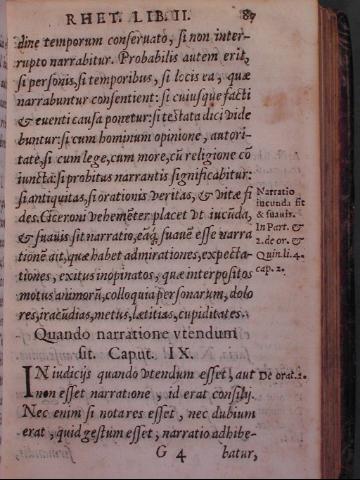 RHET. LIB. II. 87
dine temporum conseruato, si non inter-
rupto narrabitur. Probabilis autem erit,
si personis, si temporibus, si locis ea, quæ
narrabuntur consentient: si cuiusque facti
& euenti causa ponetur: si testata dici vide
buntur: si cum hominum opinione, autori-
tate, si cum lege, cum more, cũ religione cõ
iuncta: si probitus narrantis significabitur:
si antiquitas, si orationis veritas, & vitæ fi
des. Ciceroni vehemẽter placet vt iucũda,
& suauis sit narratio, eãq́ suauẽ esse narra
tionẽ ait, quæ habet admirationes, expecta-
tiones, exitus inopinatos, quæ interpositos
motus animorũ, colloquia personarum, dolo
res, iracũdias, metus, lætitias, cupiditates.
Narratio
iucunda sit
& suauis.
In Part. &
2. de or. &
Quin. li. 4.
cap. 2.
Quando narratione vtendum
sit. Caput IX.
IN iudicijs quando vtendum esset, aut
non esset narratione, id erat consilij.
Nec enim si notares esset, nec dubium
erat, quid gestum esset, narratio adhibe-
De orat. 2.
G 4 batur,